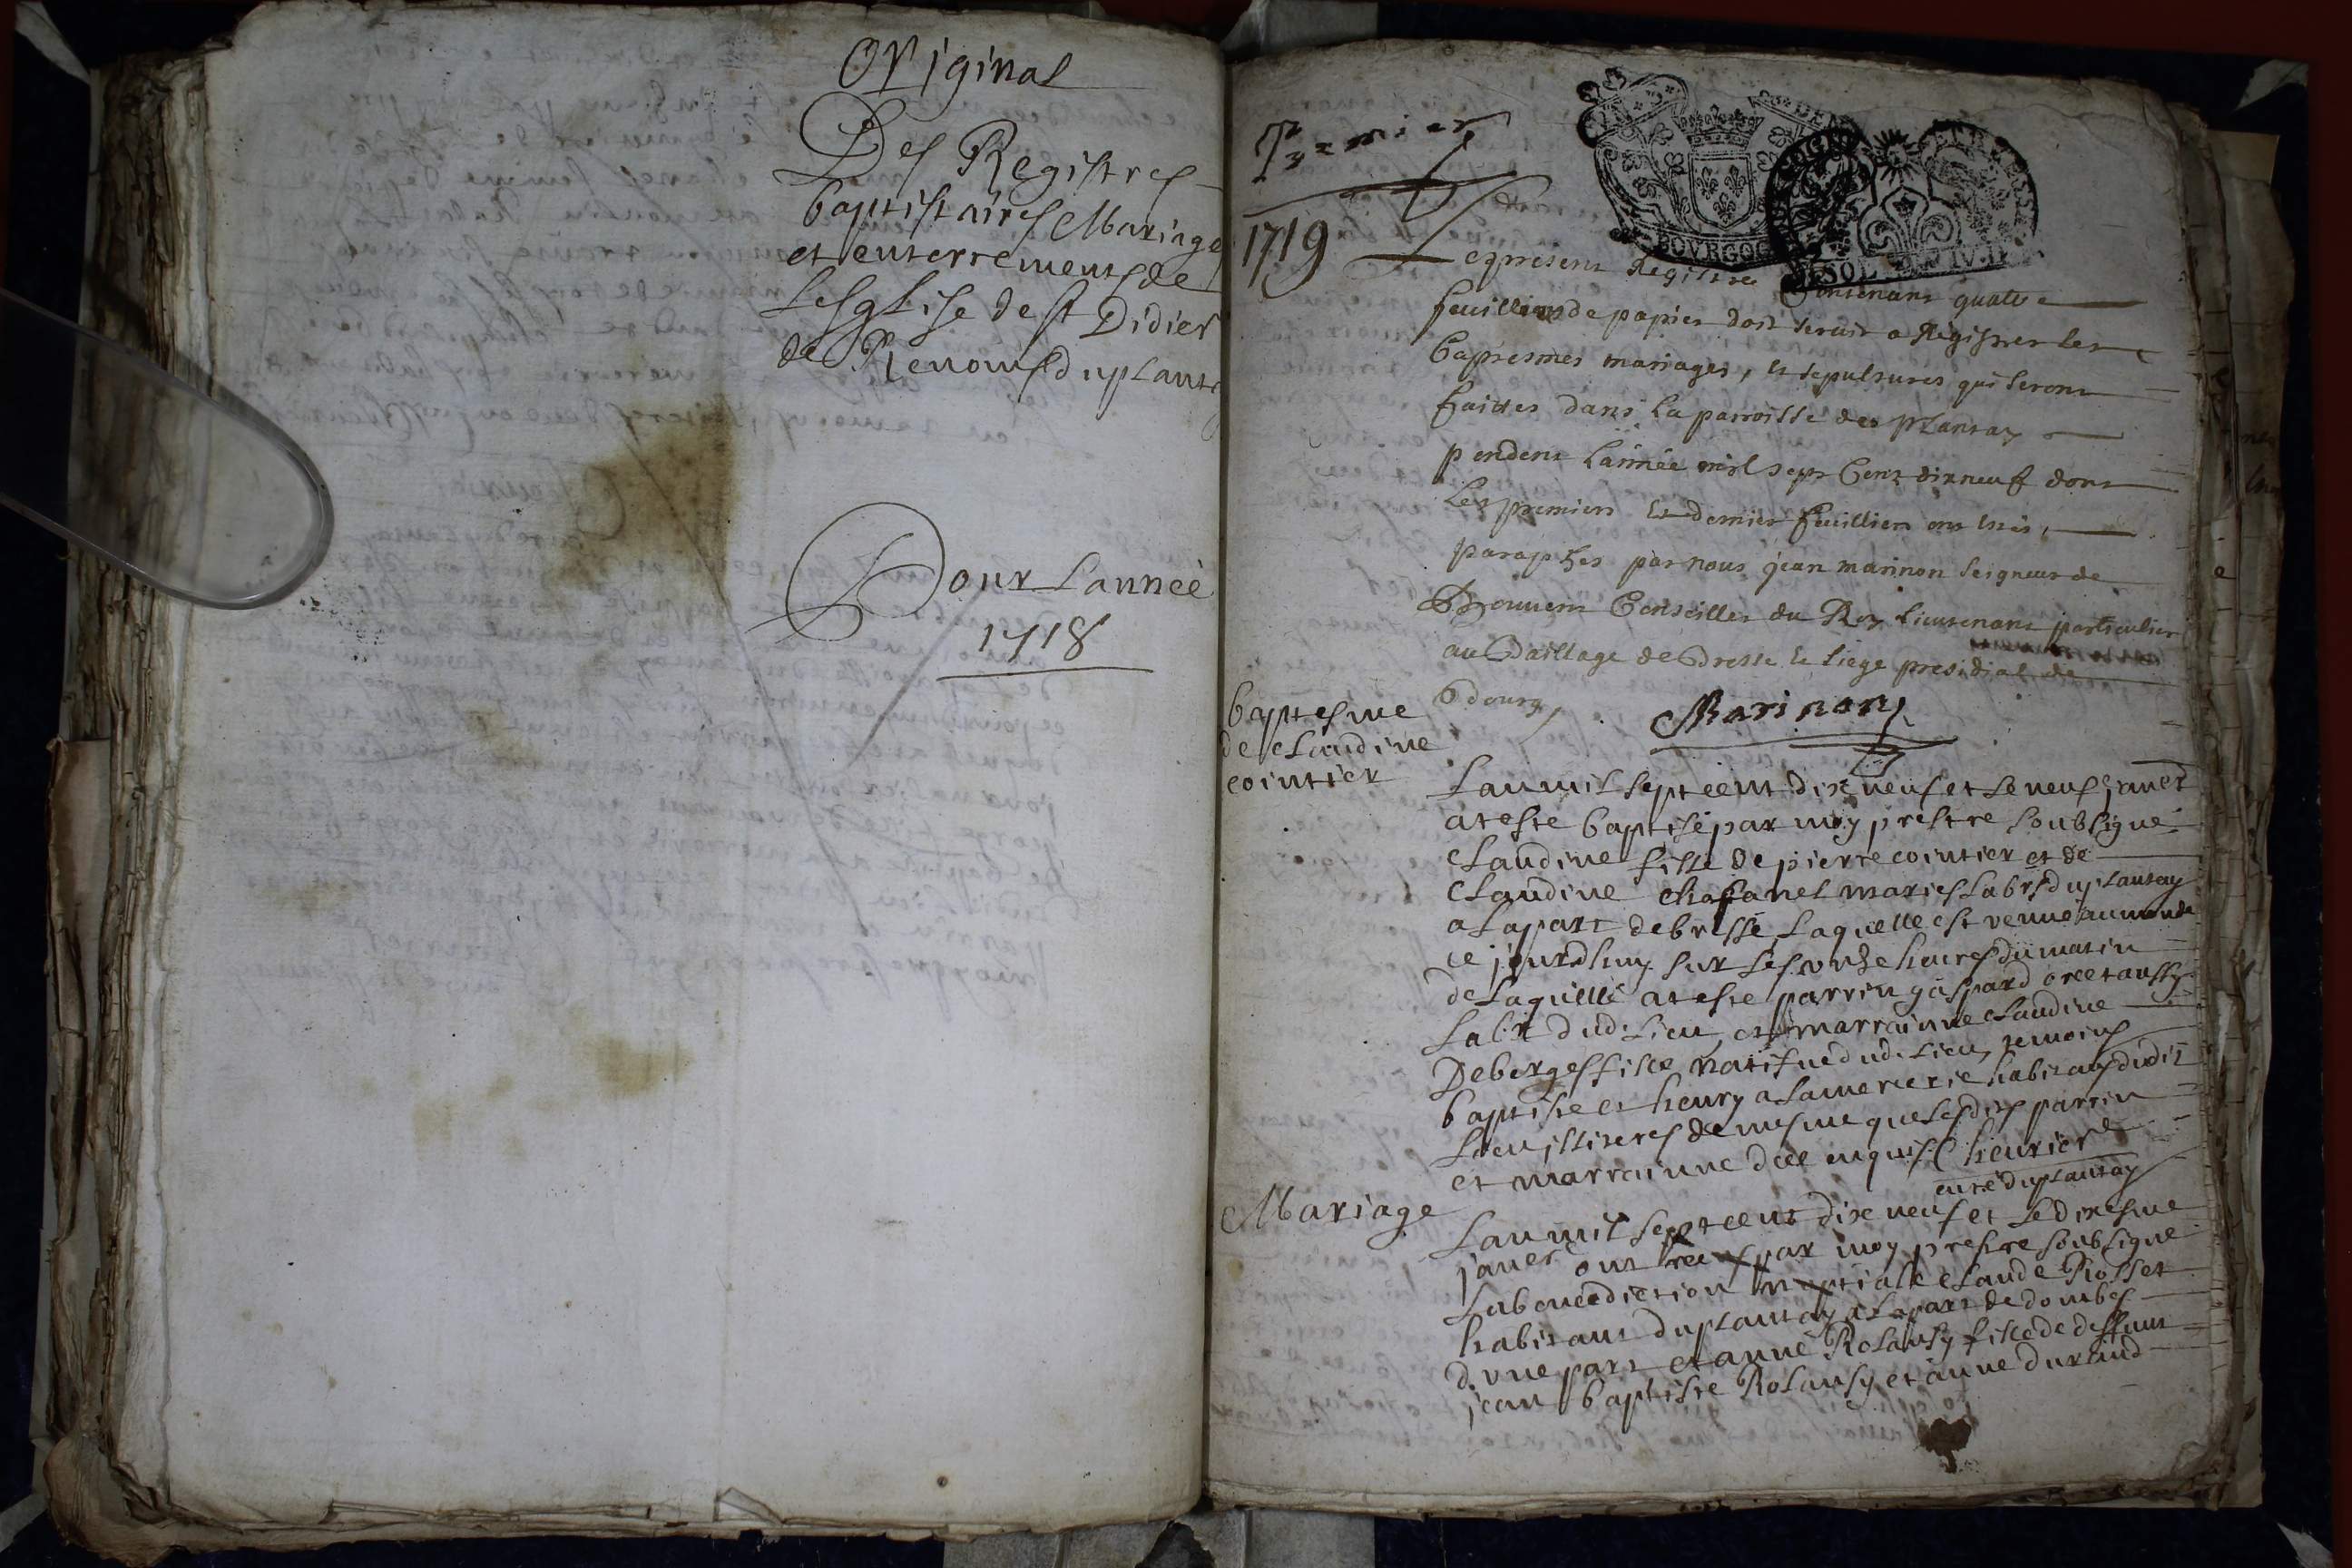 Original
Des Registres
baptistaires Mariages
et enterrements de
Lesglise de st Didier
de Renom duplantay
Pour Lanneé
1718
Premier
1719
BOVRGOG
SOL
Le present Registre Contenant quattre
feuilliets de papier doit servir a Registrer les
baptesmes mariages, et sepultures qui seront
faittes dans la parroisse de plantay
pendent l'année mil sept Cent dixneuf dont
les premiers et dernier feuilliets ont estés
paraphes par nous jean marinon seigneur de
Conseiller du Roy Lieutenant particulier
au Baillage de Bresse et siege presidial de
Bourg
Marinon
baptesme
de claudine
cointier
Lan mil sept cent dix neuf et le neuf janer
at esté baptisé par moy prestre soubsigné
claudine fille de pierre cointier et de
claudine chasanel mariés habts duplantay
a La part de bresse, Laquelle est venuë au monde
ce jourdhuy sur les onze heures du matin
de Laquelle at esté parrin gaspard aussy
habt dud. Lieu, et marrainne claudine
Deberges fille natifue dud. Lieu, temoins
baptiste et henry alamercerie habitans dudit
Lieu illiterés de mesme que lesdits parrin
et marrainne de ce enquis Cheurier
curé duplantay
Mariage
Lan mil sept cent dix neuf et le dixesme
janer ont receus par moy prestre soubsigné
La benediction nuptiale claude Rosset
habitant duplantay a La part de dombes
d'une part et anne Rolansy fille de deffunt
jean baptiste Rolansy et anne durand